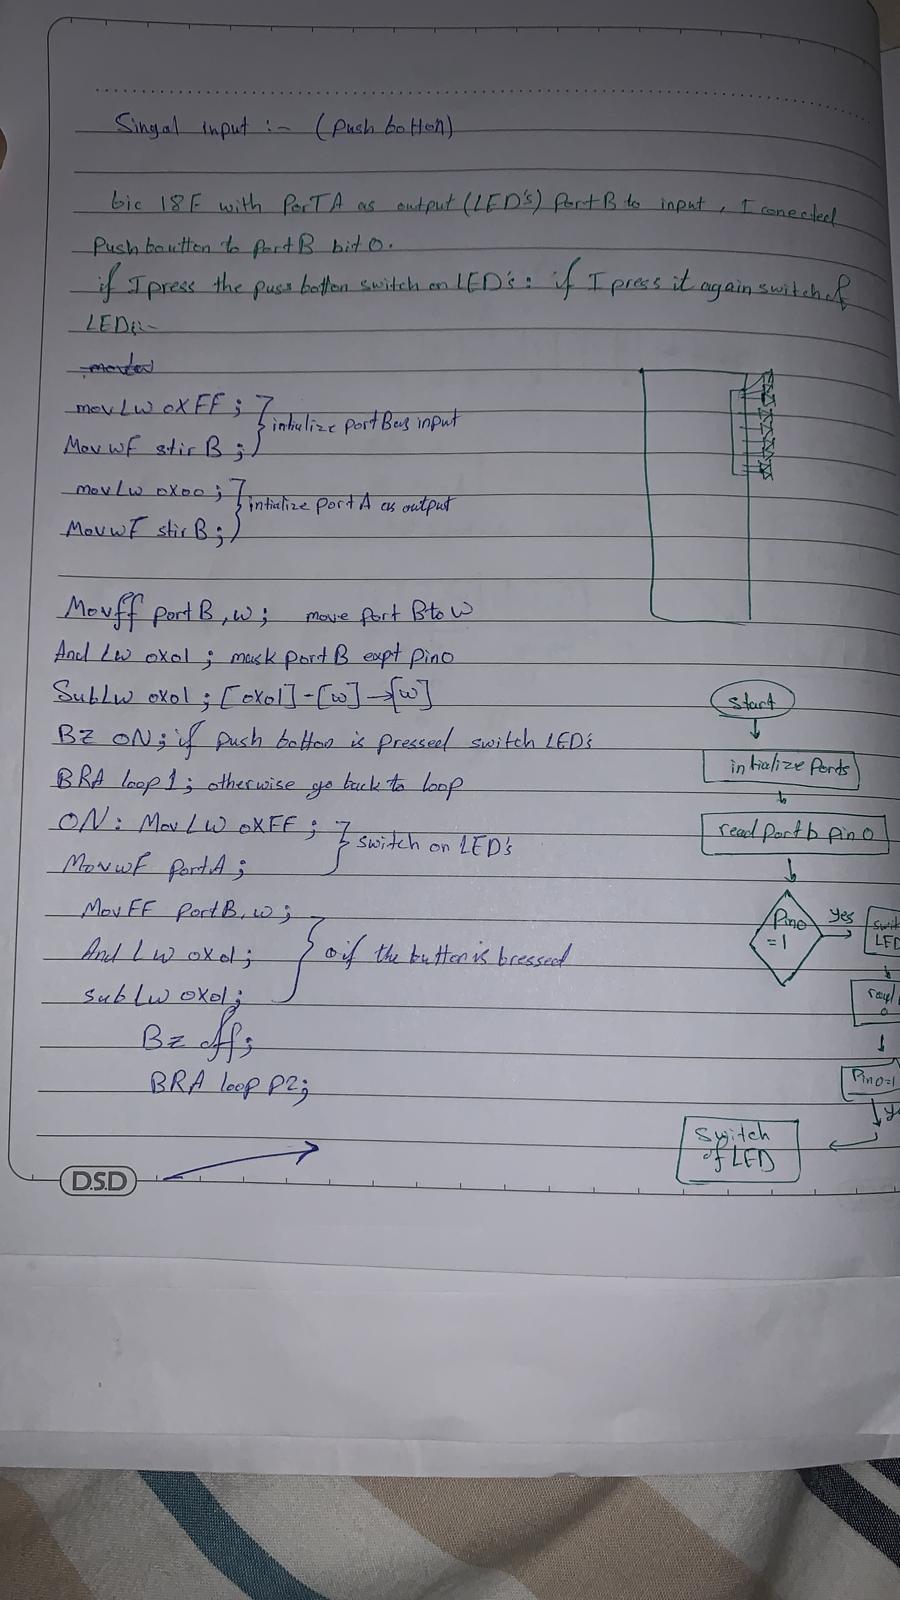 Singal input :- (push botton)
bic 18F with PorTA as output (LED's) PortB to input, I conected
Push boutton to PortB bit 0.
if I press the puss botton switch on LED's: if I press it again switch of
LED::-
movLw 0XFF ; } intialize portB as input
Mov wF stir B ;
movLw 0X00 ; } intialize port A as output
MovwF stir B ;
Movff portB, w ; move port B to w
And Lw 0x01 ; mask portB expt pin0
SubLw 0x01 ; [0x01]-[w]→[w]
Bz ON ; if push botton is presseed switch LED's
BRA loop1 ; otherwise go back to loop
ON: MovLW 0XFF ; } switch on LED's
MovwF portA ;
MovFF portB, w ;
And Lw 0x01 ; } if the button is bressed
subLw 0X01 ;
Bz off ;
BRA loop P2 ;
Start
intialize Ports
read Port b pin 0
Pin0 yes
=1
LED
0
Pin0=1
Switch
of LED
DSD